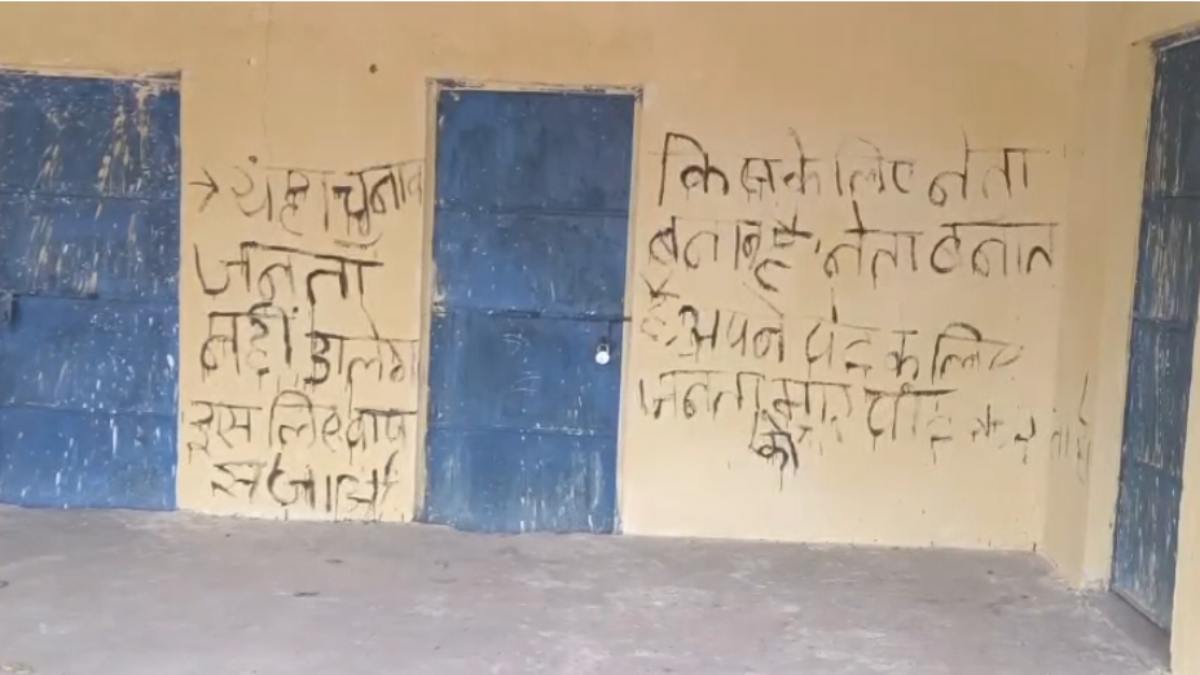 → यंहा चुनाव
जनता
नहीं डालेगा
इस लिए वापस
जाओ
किसके लिए नेता
बनाना है, नेता बनाते
है अपने पेट के लिए
जनता को मार पीट